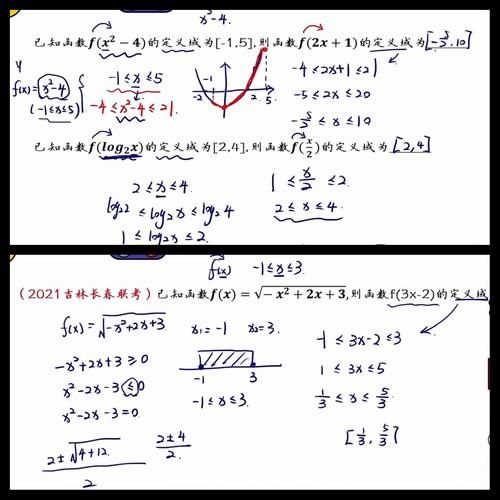 x²-4.
已知函数f(x²−4)的定义域为[-1,5],则函数f(2x+1)的定义域为[-5/2,10]
y
f(x)=x²-4
(-1≤x≤5)
-1≤x≤5
-4≤x²-4≤21.
-1
-2
2
5.
-4≤2x+1≤21
-5≤2x≤20
-5/2≤x≤10
已知函数f(log₂x)的定义域为[2,4],则函数f(x/2)的定义域为[2,4]
2≤x≤4.
log₂2≤log₂x≤log₂4
1≤log₂x≤2.
1≤x/2≤2.
2≤x≤4.
f(x) -1≤x≤3.
(2021吉林长春联考)已知函数f(x)=√(−x²+2x+3),则函数f(3x-2)的定义域
f(x)=√(-x²+2x+3)
-x²+2x+3≥0
x²-2x-3≤0
x²-2x-3=0
(2±√(4+12))/2
x₁=-1 x₂=3.
-1 3
-1≤x≤3.
(2±4)/2.
-1≤3x-2≤3
1≤3x≤5
1/3≤x≤5/3
[1/3,5/3]